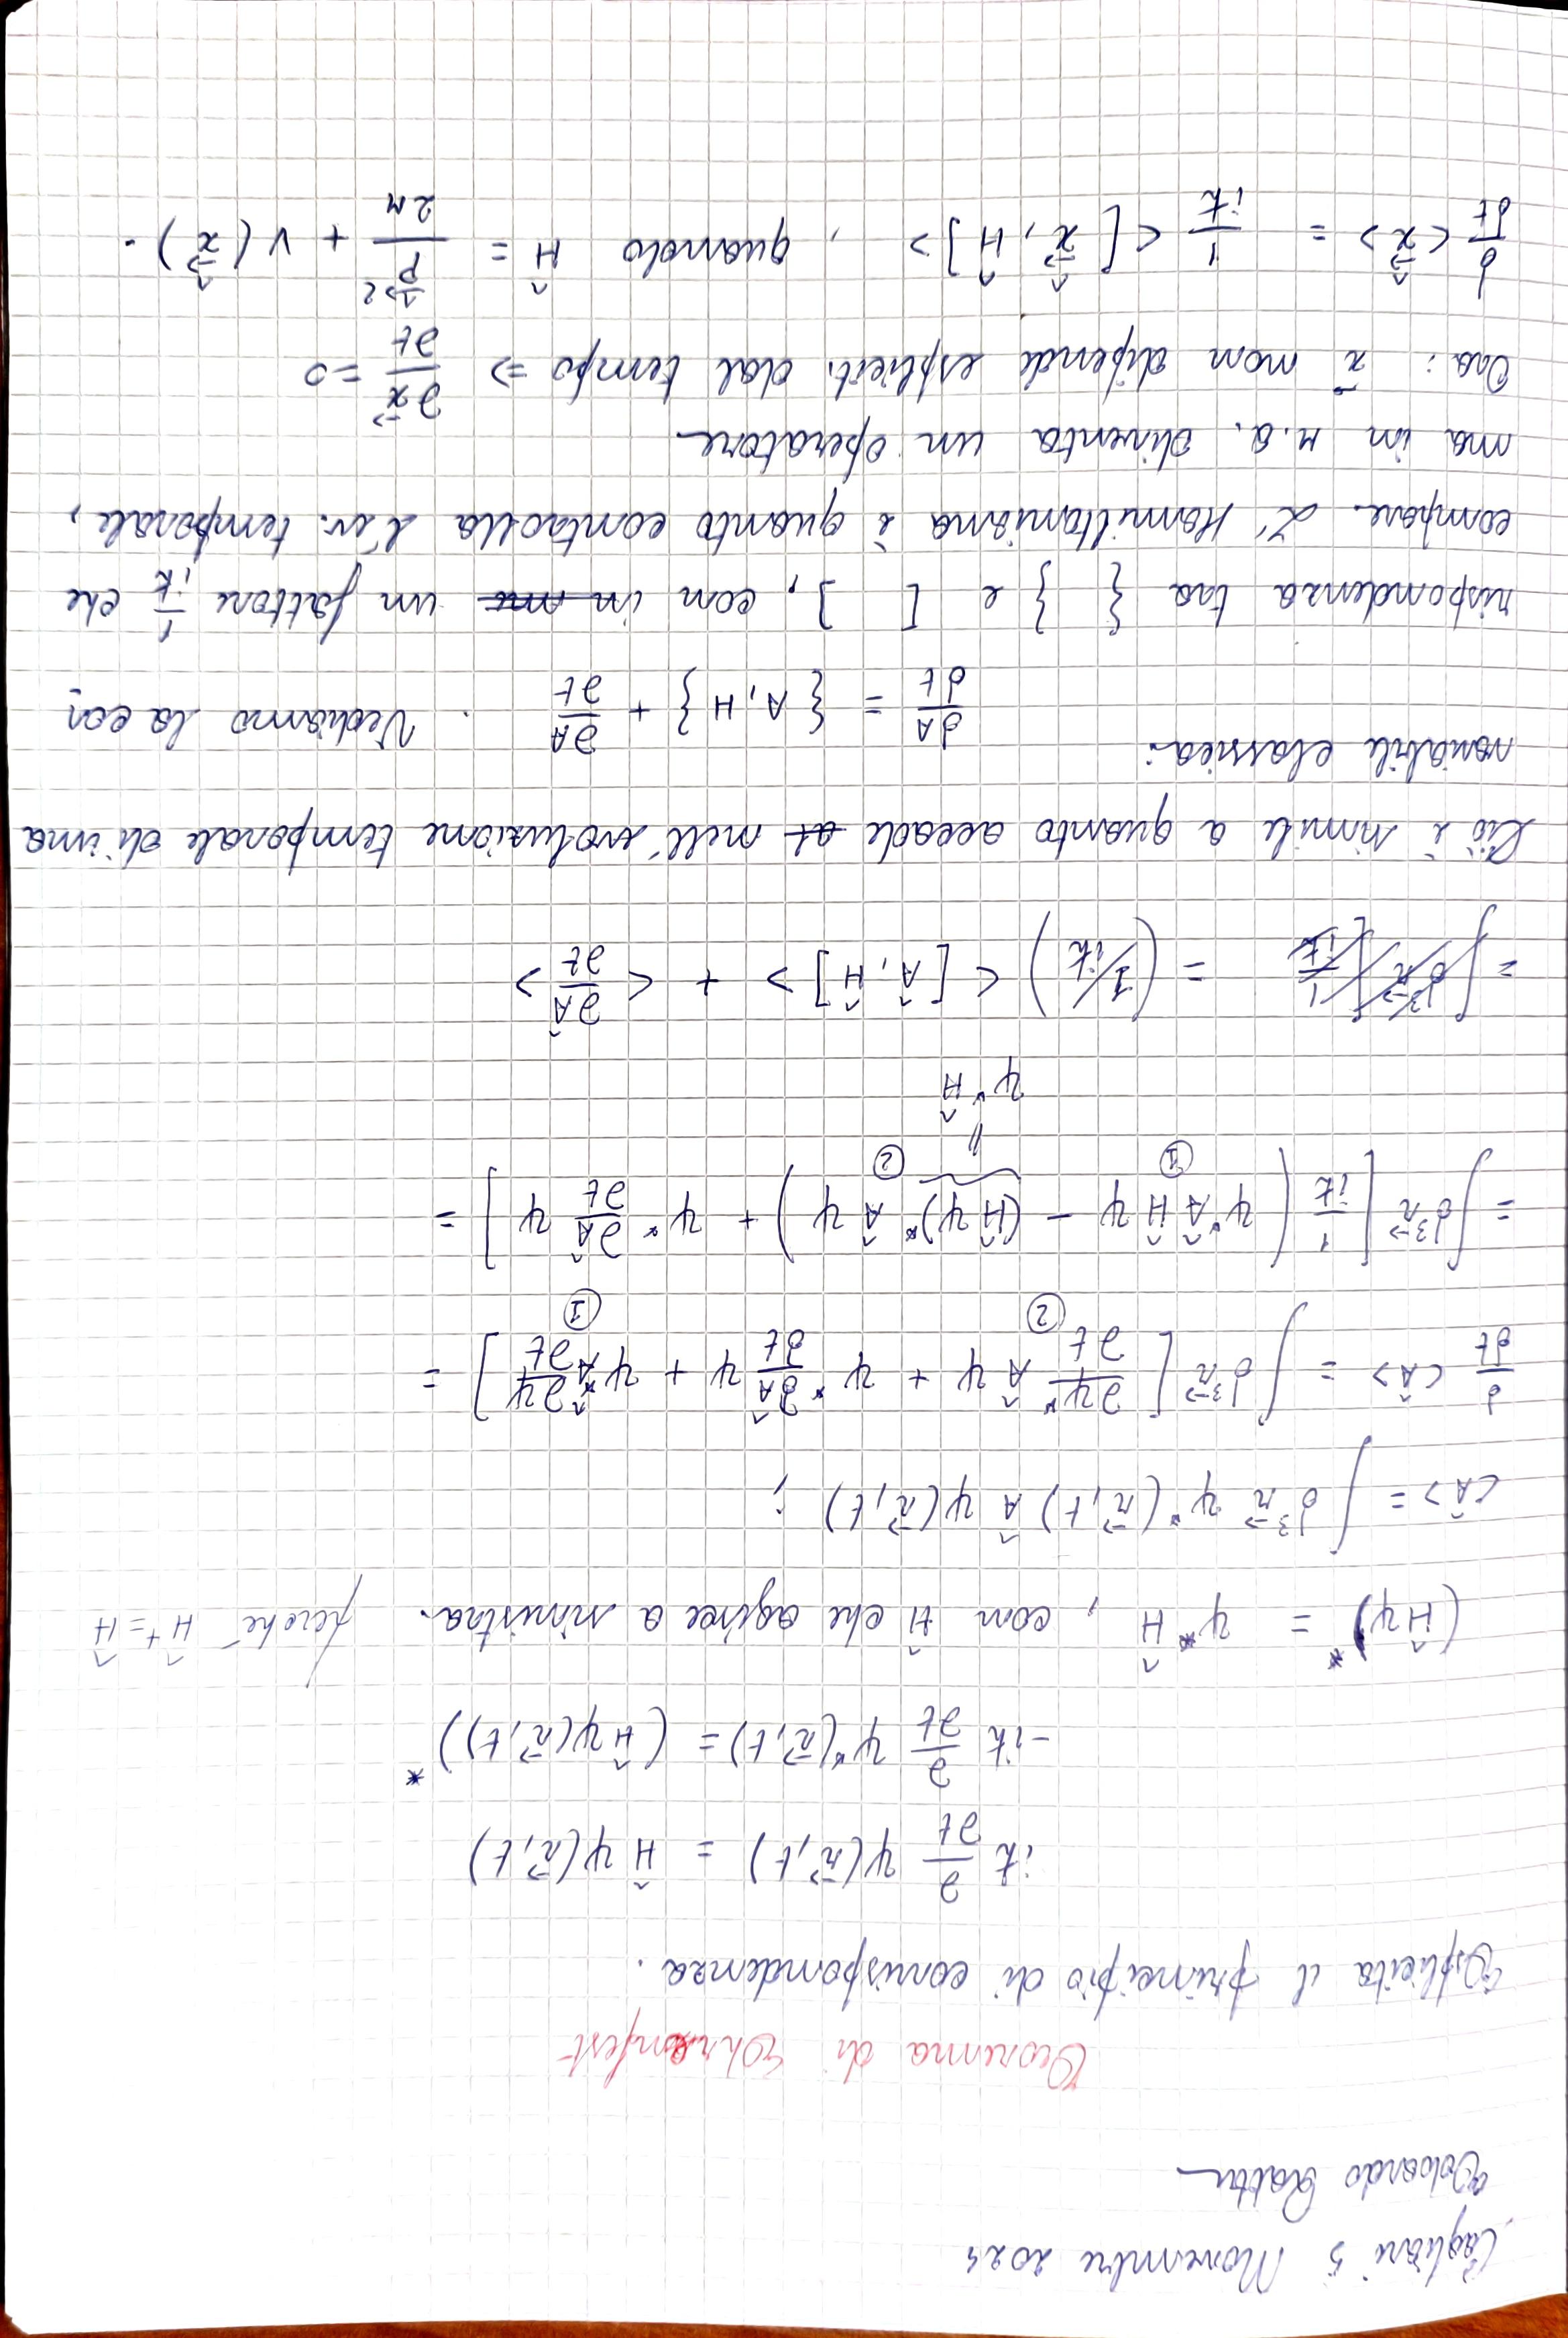 Cagliari 5 Novembre 2024
Edoardo Gatta
Teorema di Ehrenfest
Esplicita il principio di corrispondenza.
iħ ∂/∂t ψ(r⃗,t) = Ĥ ψ(r⃗,t)
-iħ ∂/∂t ψ*(r⃗,t) = (Ĥψ(r⃗,t))*
(Ĥψ)* = ψ* Ĥ , con Ĥ che agisce a sinistra. perché Ĥ⁺=Ĥ
<Â> = ∫ d³r⃗ ψ*(r⃗,t) Â ψ(r⃗,t) ;
d/dt <Â> = ∫ d³r⃗ [ ∂ψ*/∂t Â ψ + ψ* ∂Â/∂t ψ + ψ* Â ∂ψ/∂t ] =
② ①
= ∫ d³r⃗ [ 1/iħ ( ψ* Â Ĥ ψ - (Ĥψ)* Â ψ ) + ψ* ∂Â/∂t ψ ] =
① ②
ψ* Ĥ
= ∫ d³r⃗ [ 1/iħ = (1/iħ) < [Â, Ĥ] > + < ∂Â/∂t >
Ciò è simile a quanto accade at nell'evoluzione temporale di una
variabile classica:
dA/dt = {A, H} + ∂A/∂t . Vediamo la cor-
rispondenza tra { } e [ ], con in me un fattore 1/iħ che
compare. L'Hamiltoniana è quanto controlla l'ev. temporale,
ma in M.Q. diventa un operatore
Ora: x⃗ non dipende esplicit. dal tempo => ∂x⃗/∂t = 0
d/dt <x̂⃗> = 1/iħ < [x̂⃗, Ĥ] > , quando Ĥ = p̂⃗²/2M + V(x̂⃗).